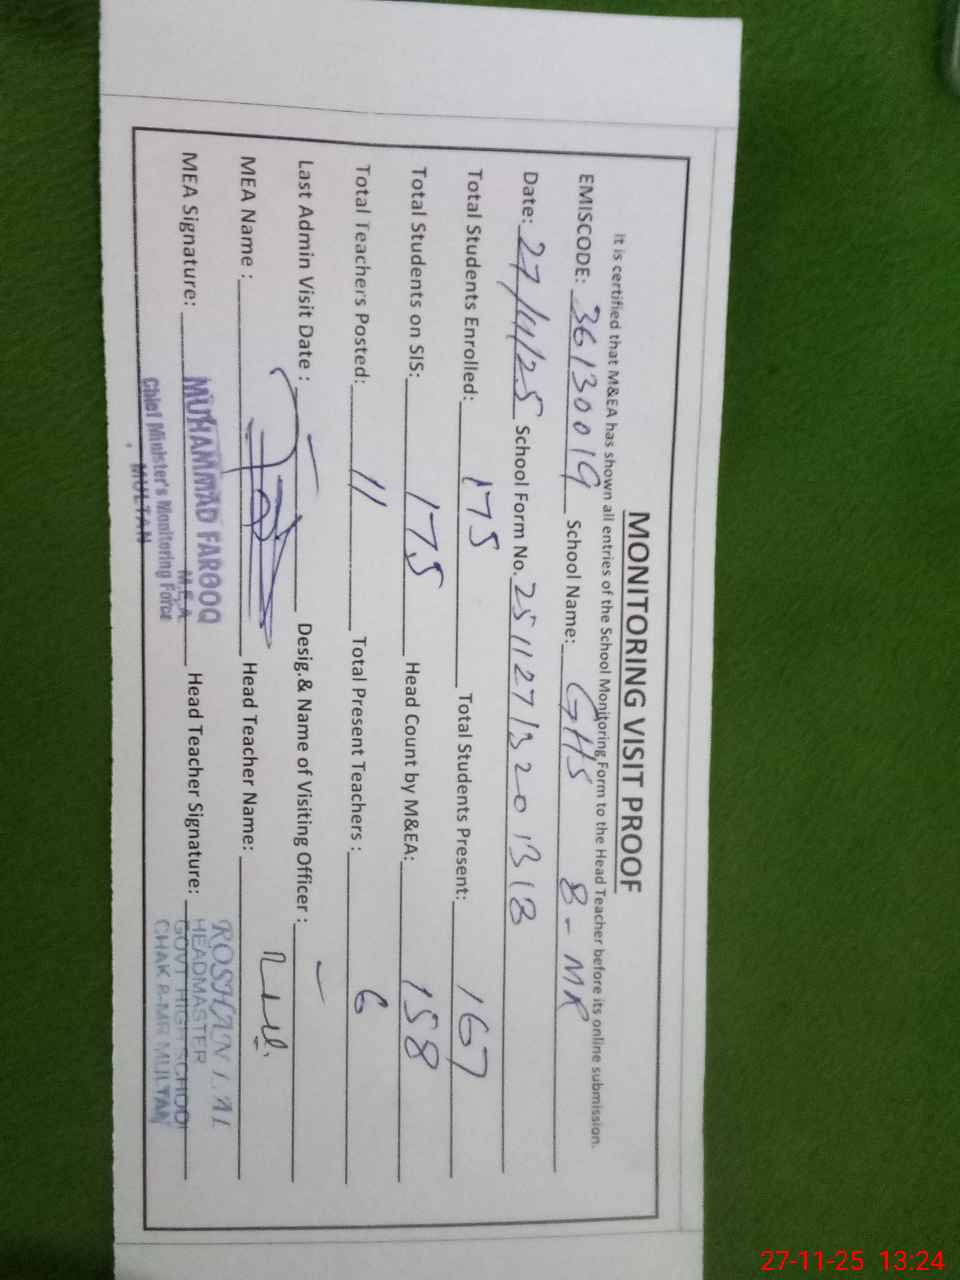 MONITORING VISIT PROOF
It is certified that M&EA has shown all entries of the School Monitoring Form to the Head Teacher before its online submission.
EMISCODE: 36130019 School Name: GHS 8-MR
Date: 27/11/25 School Form No. 25112713201318
Total Students Enrolled: 175 Total Students Present: 167
Total Students on SIS: 175 Head Count by M&EA: 158
Total Teachers Posted: 11 Total Present Teachers : 6
Last Admin Visit Date : — Desig.& Name of Visiting Officer : —
MEA Name : Head Teacher Name:
MEA Signature: Head Teacher Signature:
MUHAMMAD FAROOQ
M.E.A
Chief Minister's Monitoring Force
MULTAN
ROSHAN LAL
HEADMASTER
GOVT HIGH SCHOOL
CHAK 8-MR MULTAN
27-11-25 13:24